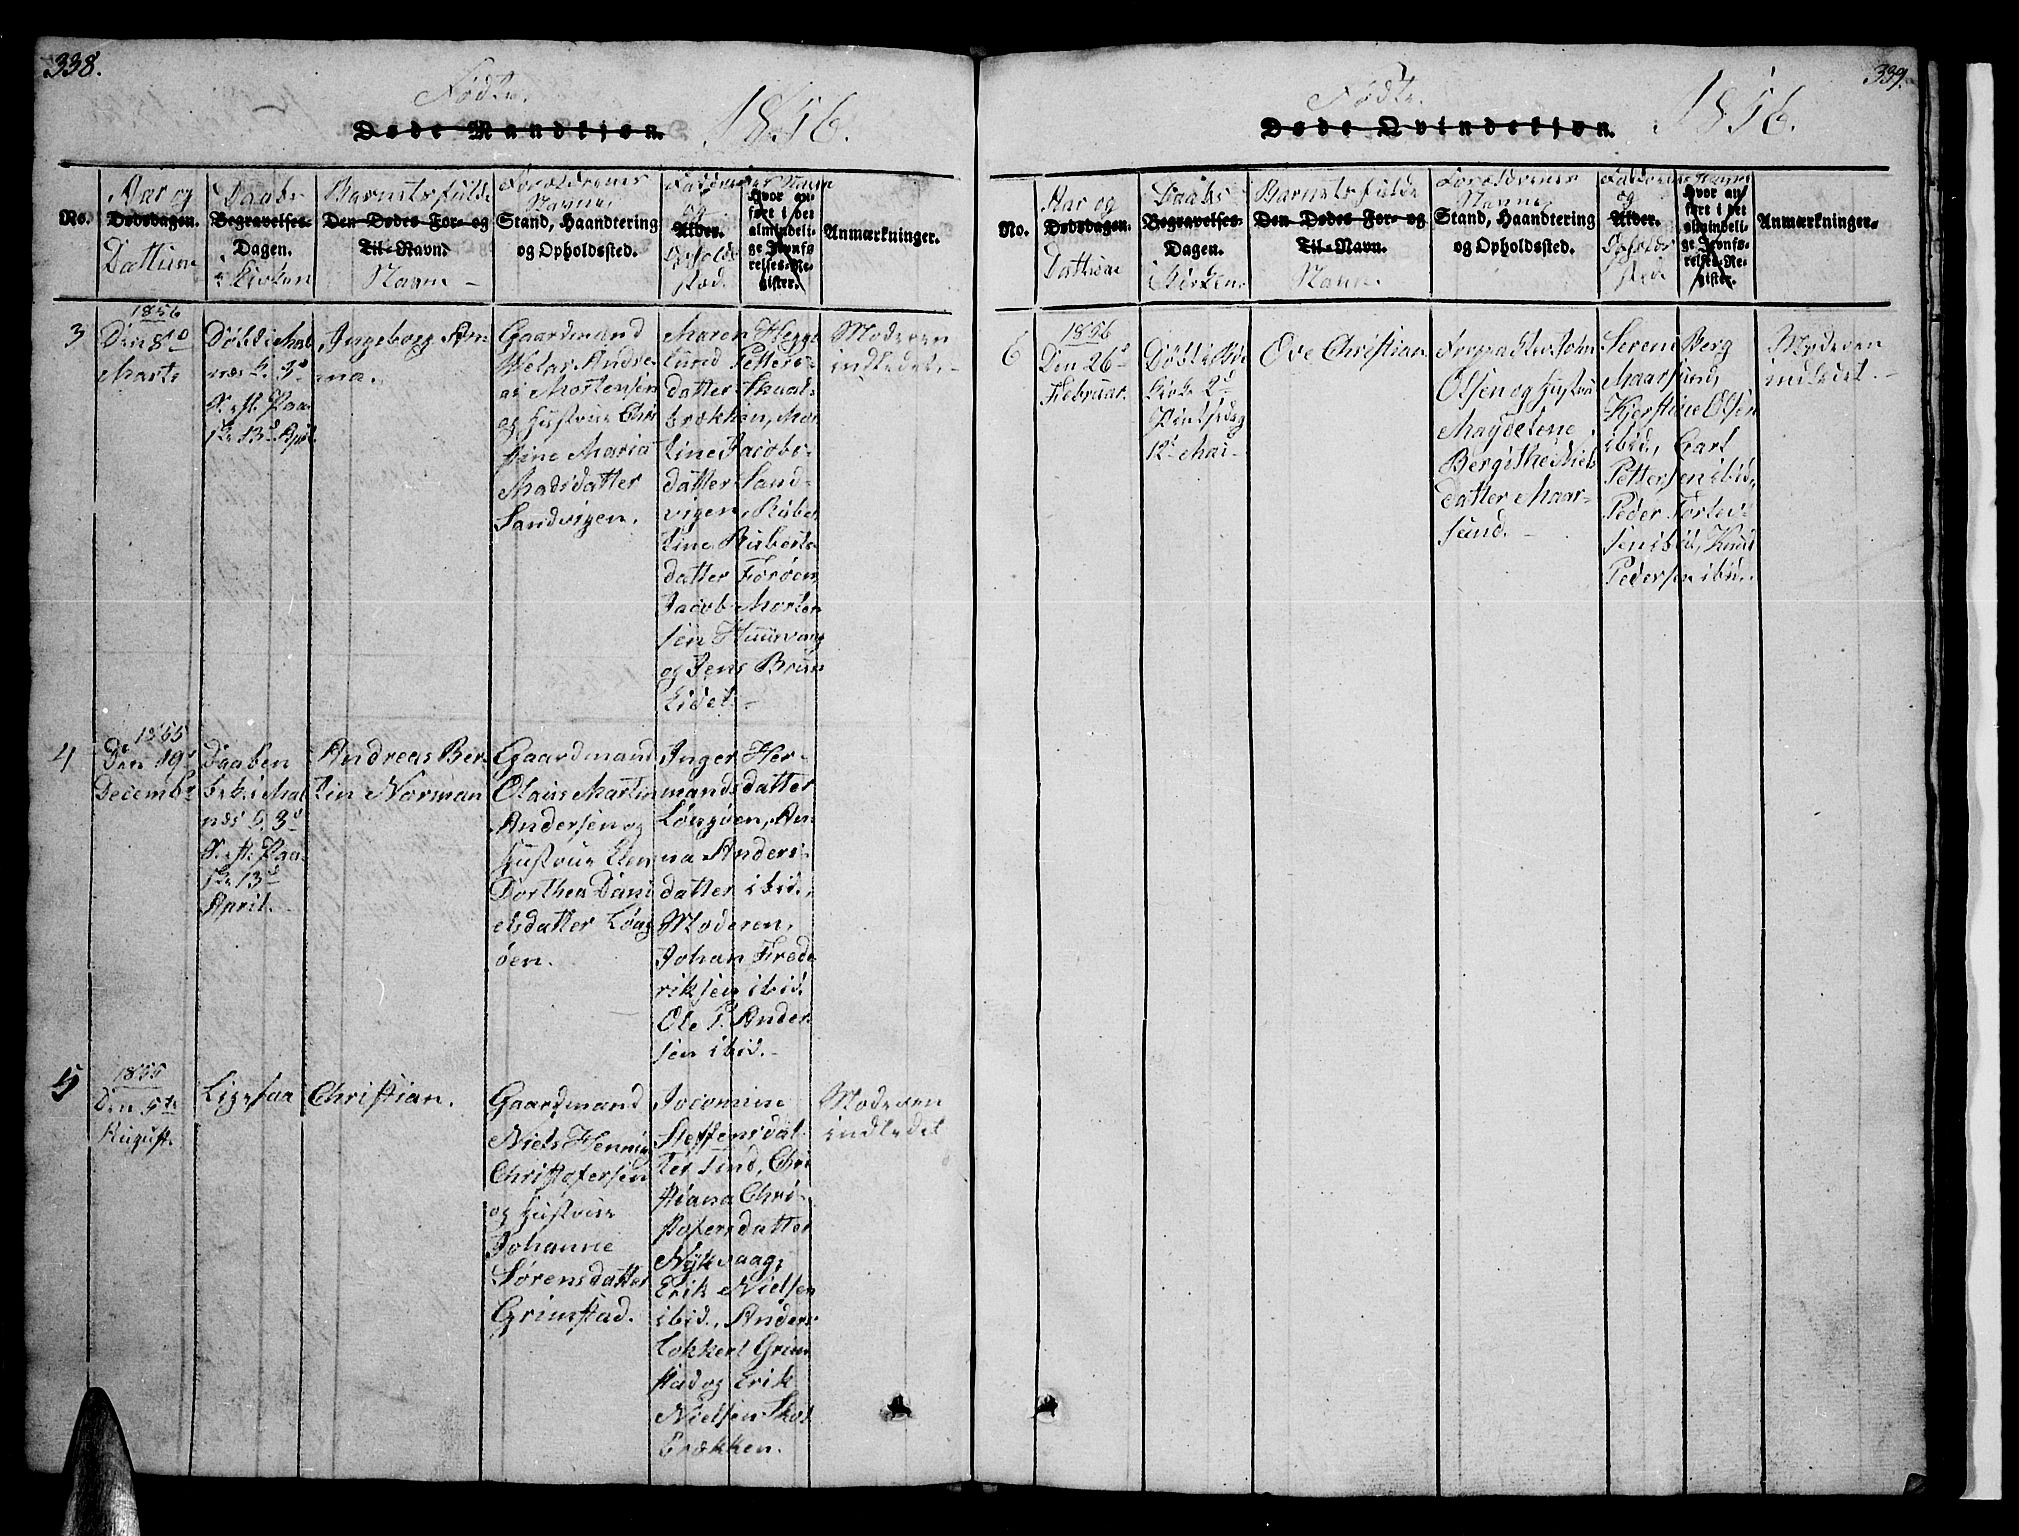 338.
Fødte.
Døde Mandkjøn. 1856.
No.
Aar og
Dødsdagen.
Dattum
Daabs
Begravelses-
Dagen.
i Kirken
Barnets fulde
Den Dødes For- og
Til-Navn.
Navn
Forældrenes
Navne,
Stand, Haandtering
og Opholdssted.
Faddernes Navn
og
Alder.
Opholds
sted.
Hvor an-
ført i det
almindeli-
ge Jevnfø-
relses-Re-
gister.
Anmærkninger.
3
1856
Den 8d
Marts
Døbt i Mal
næs K. 3d
S. eft. Paa
ske 13d Apri
Ingeborg An
na.
Gaardmand
Andre
as Mortensen
og Hustrue Chri
stine Maria
Madsdatter
Sandvigen.
Maren Hegge
lund Petters-
datter Skaal
brækken, Mar
tine Jacobs-
datter Sand-
vigen, Ruber
tine Ruberts-
datter Forøen,
Jacob Morten
sen Skuurvaag
og Jens Bruun
Eidet.
Moderen
indledet.
4
1855
Den 19d
Decembr
Daaben
bek. i Mal
næs K. 3d
S. eft. Paa
ske 13d
April.
Andreas Ber-
tin Norman
Gaardmand
Olaus Martin
Andersen og
Hustrue Elen
Dorthea Dani
elsdatter Løng
øen.
Inger Her-
mandsdatter
Løngøen, An
na Anders-
datter ibid,
Moderen,
Johan Frede
riksen ibid.
Ole P. Ander
sen ibid.
5
1855
Den 5te
August.
Ligesaa
Christian.
Gaardmand
Niels Hennig
Christofersen
og Hustrue
Johanne
Sørensdatter
Grimstad.
Jocomine
Steffensdat
ter Sund, Chri
stiana Chri-
stofersdatter
Nykvaag,
Erik Nielsen
ibid., Anders
Lokkert Grim
stad og Erik
Nielsen Skaal
brækken.
Moderen
indledet
339.
Fødte.
Døde Qvindekjøn. 1856.
No.
Aar og
Dødsdagen.
Dattum
Daabs
Begravelses-
Dagen.
i Kirken.
Barnets fulde
Den Dødes For- og
Til-Navn.
Navn.
Forældrenes
Navne,
Stand, Haandtering
og Opholdssted.
Faddernes Navne
og
Alder.
Opholds
sted
Hvor an-
ført i det
almindeli-
ge Jevnfø-
relses-Re-
gister.
Anmærkninger.
6
1856
Den 26d
Februar.
Døbt i Bøe
Kirke 2d
Pintsedag
12d Mai
Ove Christian
Forpagter John
Olsen og Hustrue
Magdelene
Bergithe Niels
datter Maar-
sund.
Serene Berg
Maarsund,
Kjerstine Olsen
ibid, Carl
Pettersen ibid,
Peder Torlev-
sen ibid, Knud
Pedersen ibid.
Moderen
indledet.